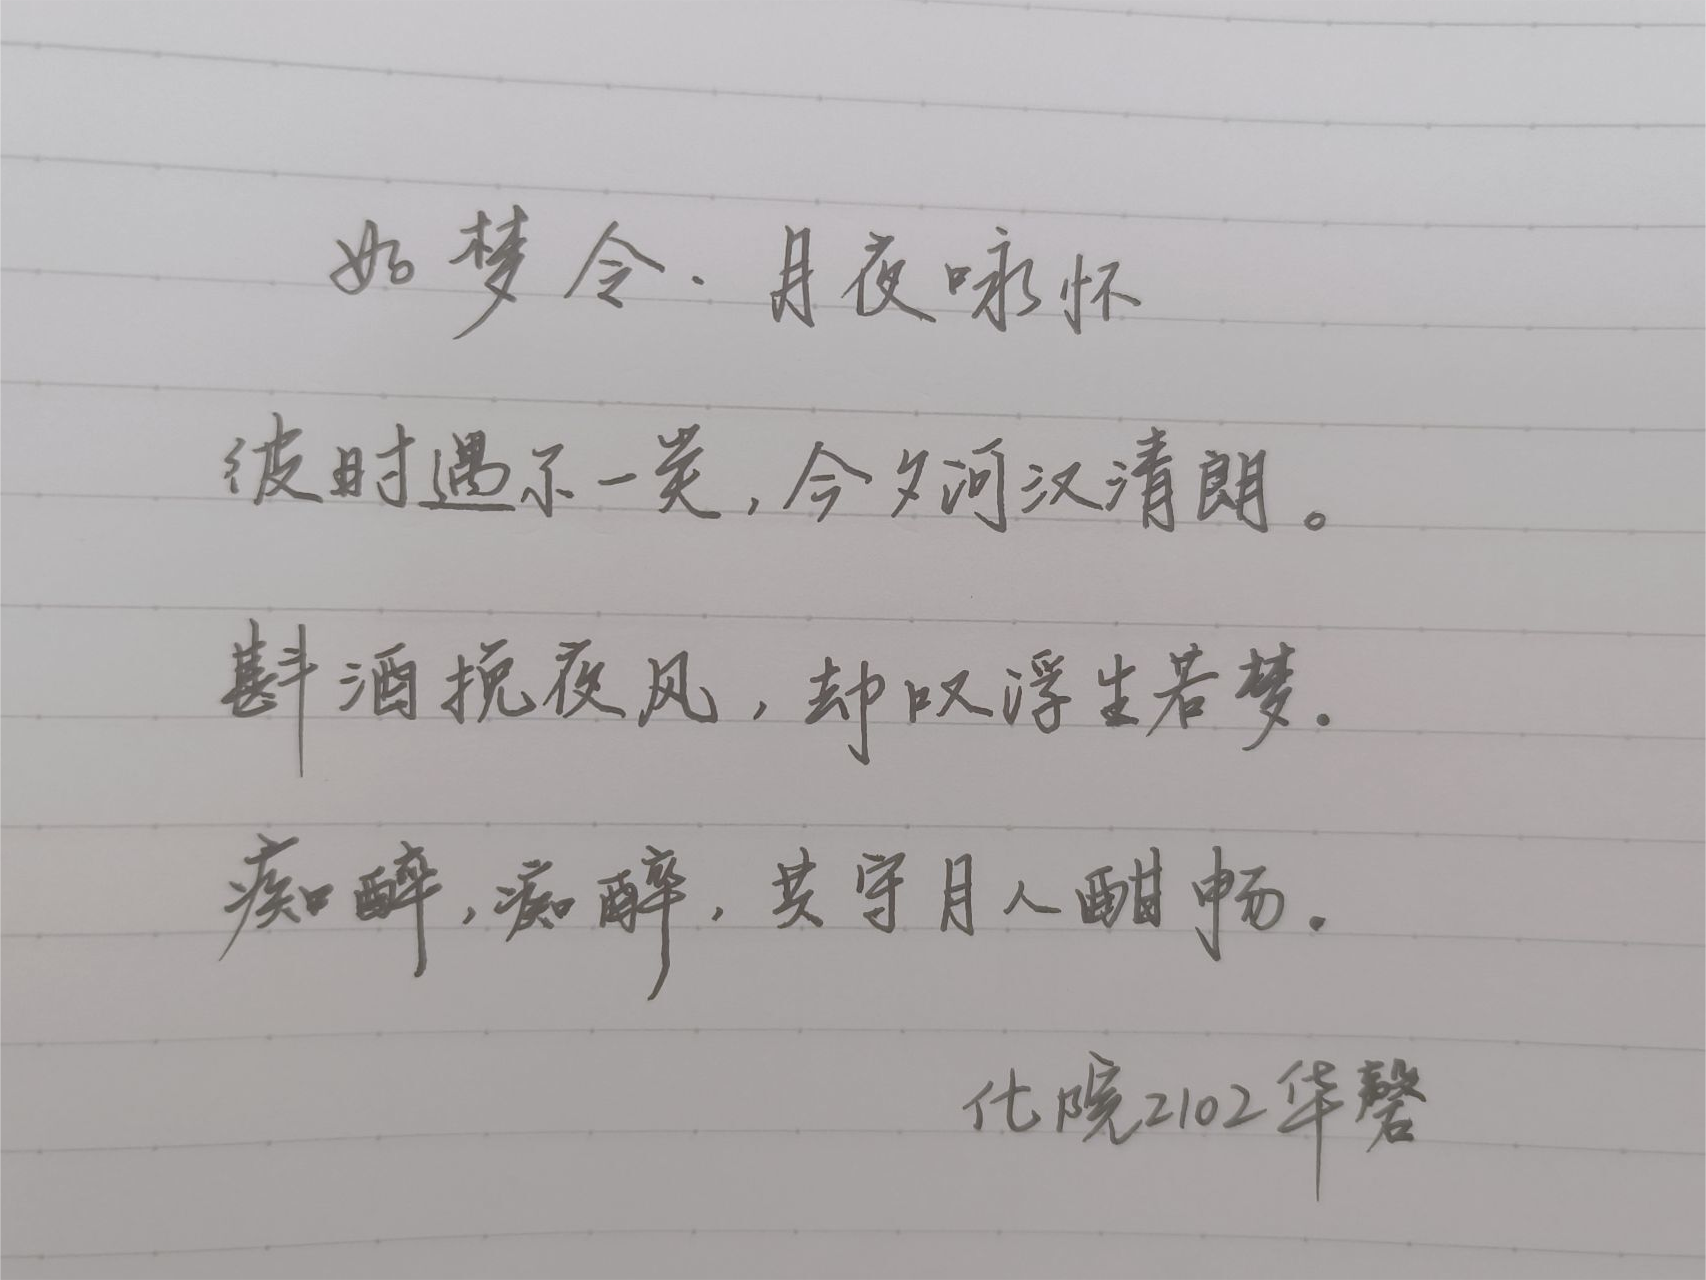 如梦令·月夜咏怀
彼时遇尔一笑,今夕河汉清朗。
斟酒挽夜风,却叹浮生若梦.
痴醉,痴醉,共守月人酣畅.
化院2102华磬